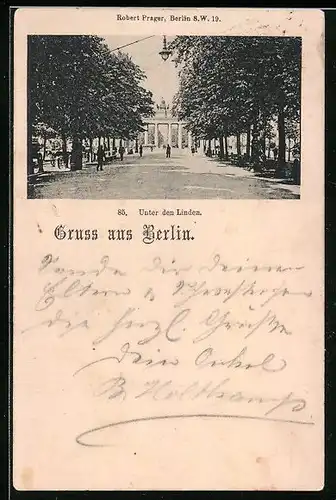 Robert Prager, Berlin S.W. 19.
85. Unter den Linden.
Gruss aus Berlin.
Sende Dir Deinen
Eltern & Schwestern
die herzl. Grüße
Dein Onkel
B Holtkamp